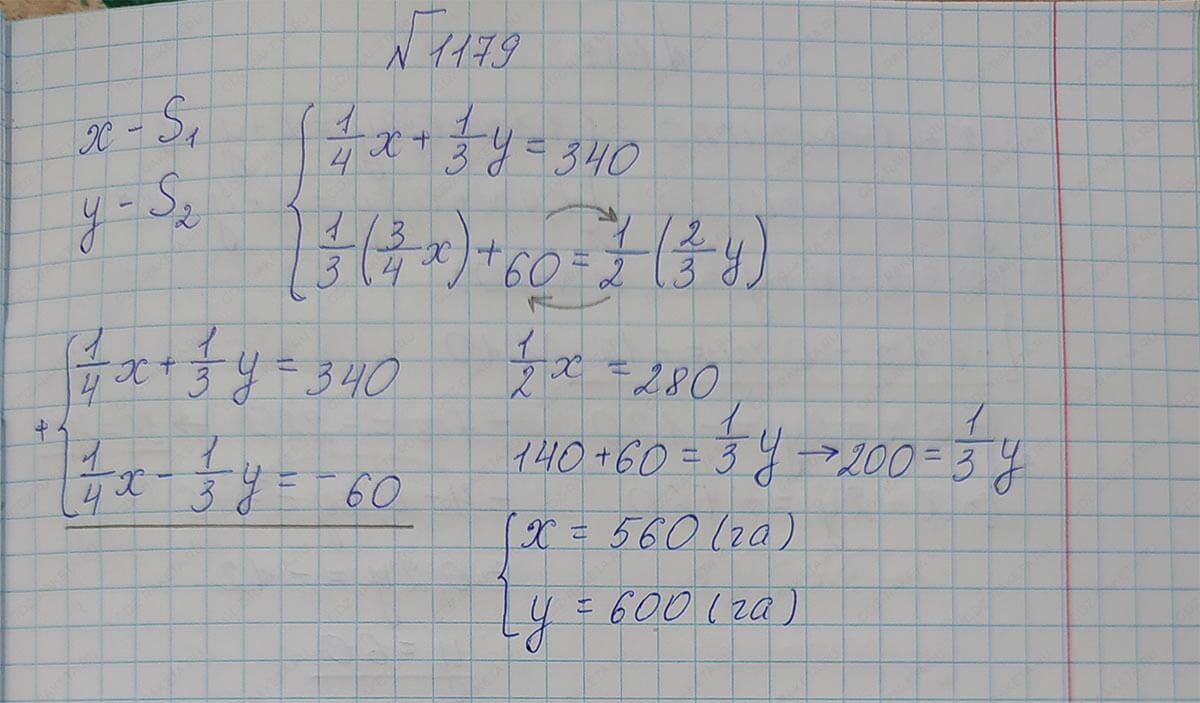 №1179
x - S₁
y - S₂
{ 1/4 x + 1/3 y = 340
1/3 (3/4 x) + 60 = 1/2 (2/3 y)
+ { 1/4 x + 1/3 y = 340
1/4 x - 1/3 y = - 60
1/2 x = 280
140 + 60 = 1/3 y → 200 = 1/3 y
{ x = 560 (га)
y = 600 (га)